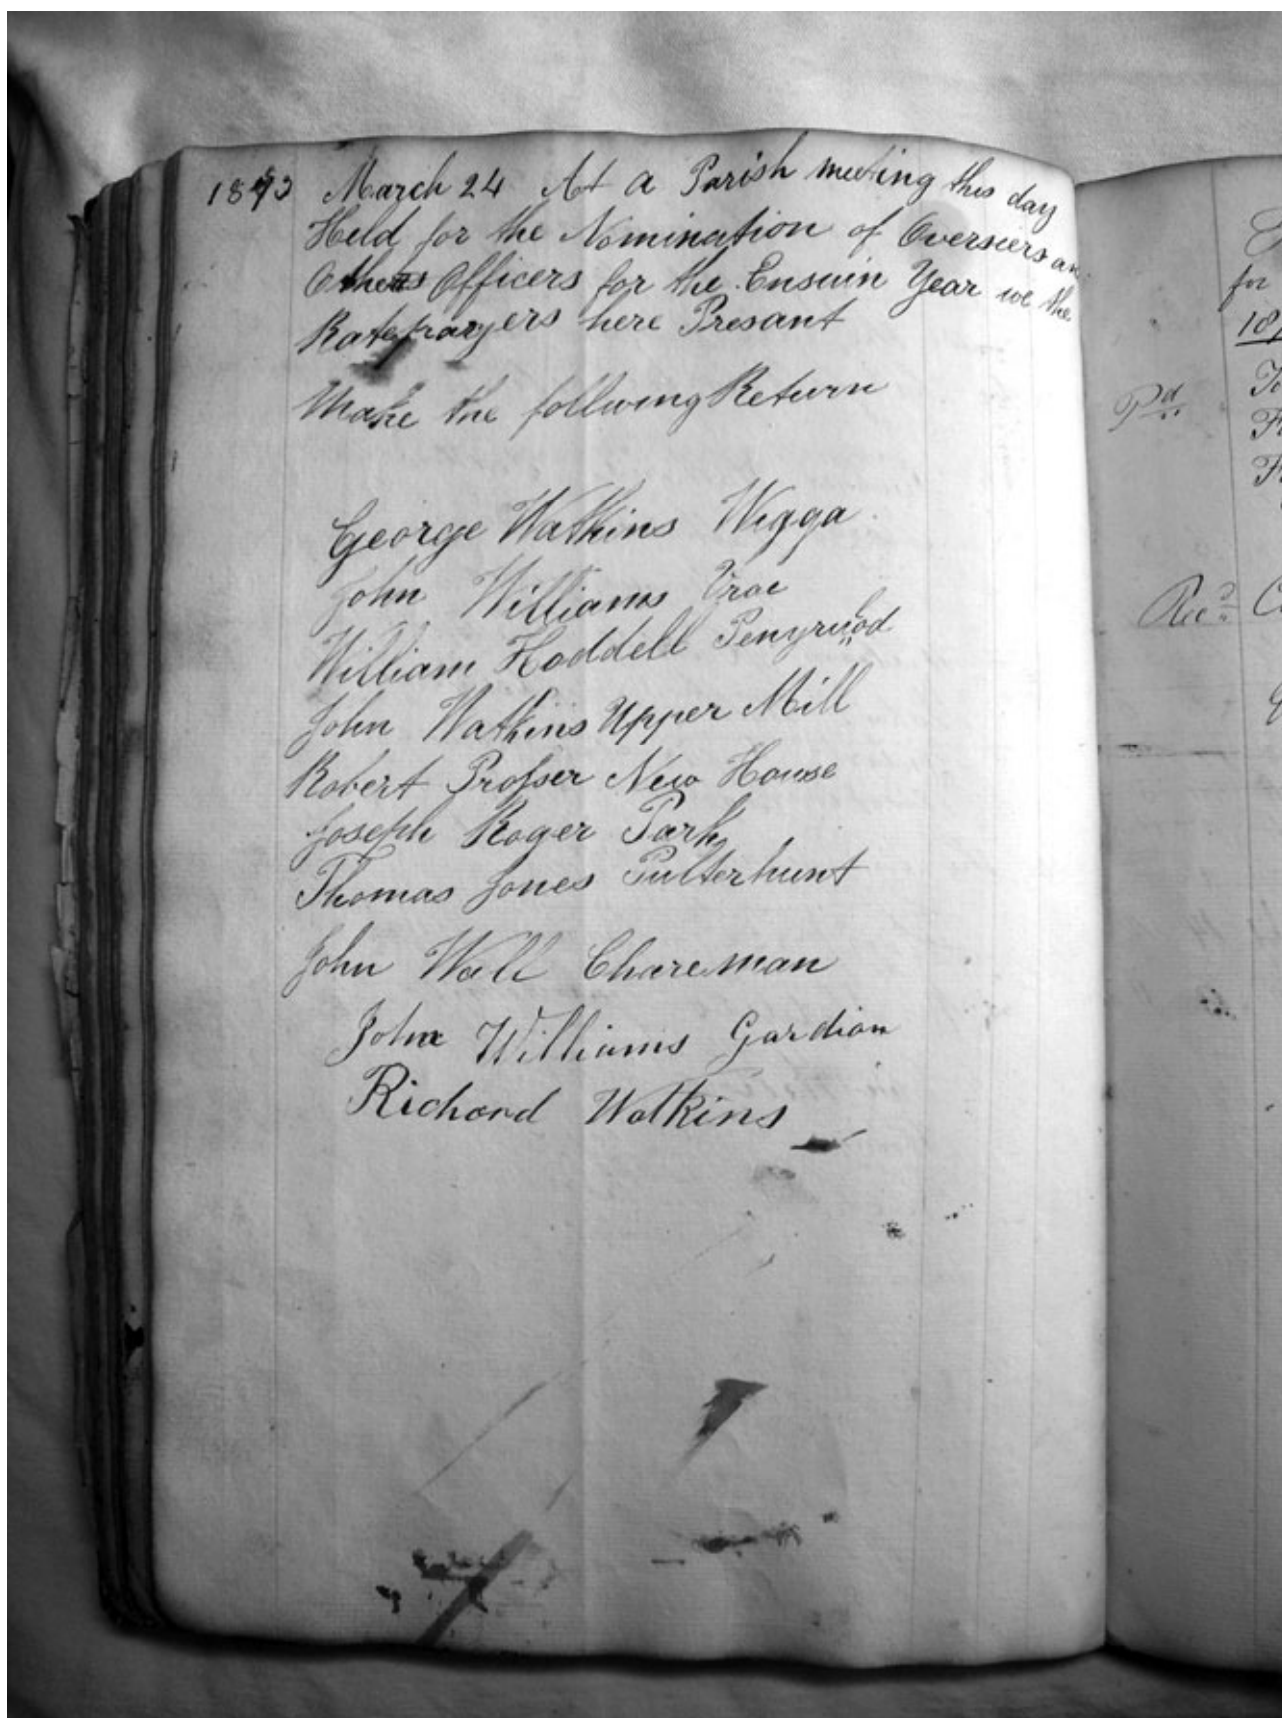 1873 March 24 At a Parish meeting this day
Held for the Nomination of Overseers an
Others Officers for the Ensuin Year we the
Ratepayers here Presant
Make the follwing Return
George Watkins Wigga
John Williams Vroe
William Hoddell Penyrwod
John Watkins Upper Mill
Robert Prosser New House
Joseph Roger Park
Thomas Jones Pulterhunt
John Wall Chareman
John Williams Gardian
Richard Watkins
for
18
Pd
Recd